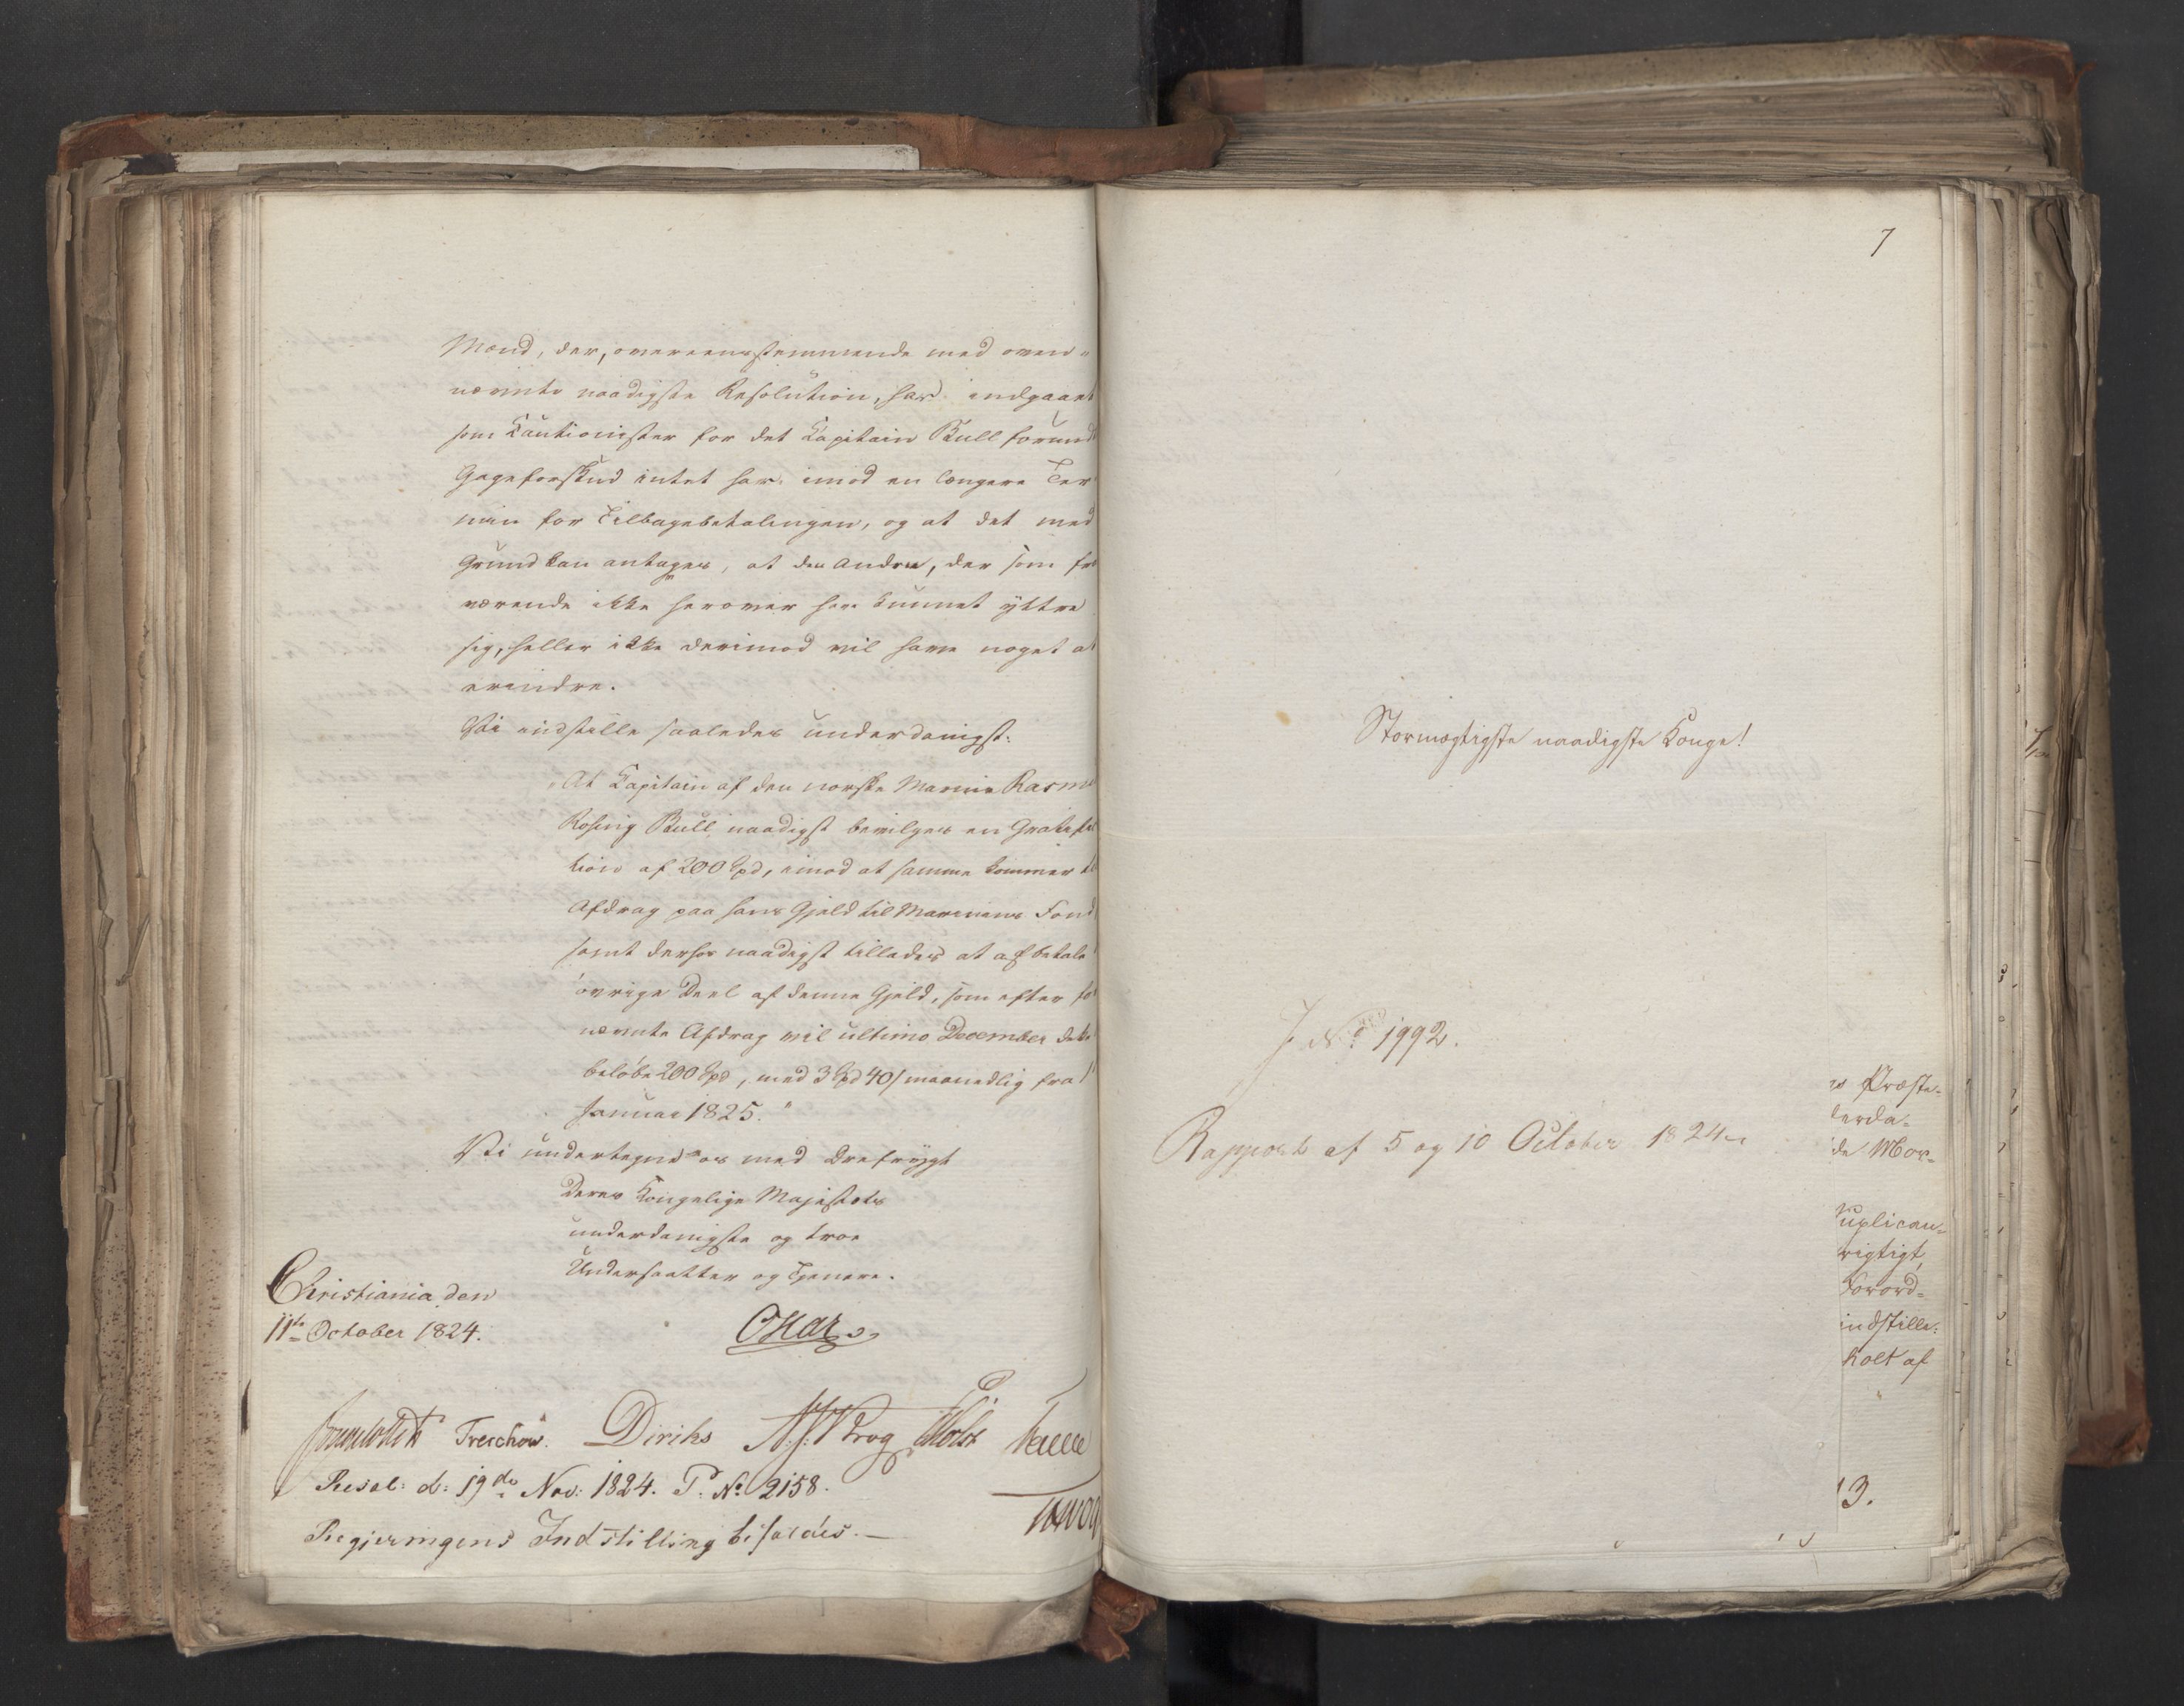 Mænd, der, overeensstemmende med oven-
nævnte naadigste Resolution, har indgaaet
som Kautionister for det Kapitain Bull forund
Gageforskud intet har imod en længere Ter
min for Tilbagebetalingen, og at det med
Grund kan antages, at den Anden, der som fra
værende ikke herover har kunnet yttre
sig, heller ikke derimod vil have noget at
erindre.
Vi indstille saaledes underdanigst:
"At Kapitain af den norske Marine Rasm
Rosing Bull naadigst bevilges en Gratifica
tion af 200 Spd, imod at samme kommer til
Afdrag paa hans Gjeld til Marinens Fond
samt derhos naadigst tillades at afbetale
övrige Deel af denne Gjeld, som efter for
nævnte Afdrag vil ultimo December dette
belöbe 200 Spd, med 3 Spd 40 s maanedlig fra 1
Januar 1825."
Vi undertegne os med Ærefrygt
Deres Kongelige Majestæts
underdanigste og troe
Undersaatter og Tjenere.
Christiania den
11te October 1824.
Oscar
Treschow. Diriks Krog Holst
Resol: d: 19de Nov: 1824. P. No 2158.
Regjeringens Indstilling bifaldes.—
7
Stormægtigste naadigste Konge!
J. No 1992.
Rapport af 5 og 10 October 1824
Præste-
lerda-
de Mor-
uplican-
rigtigt,
Forord-
indstille:
holt af
"
13.